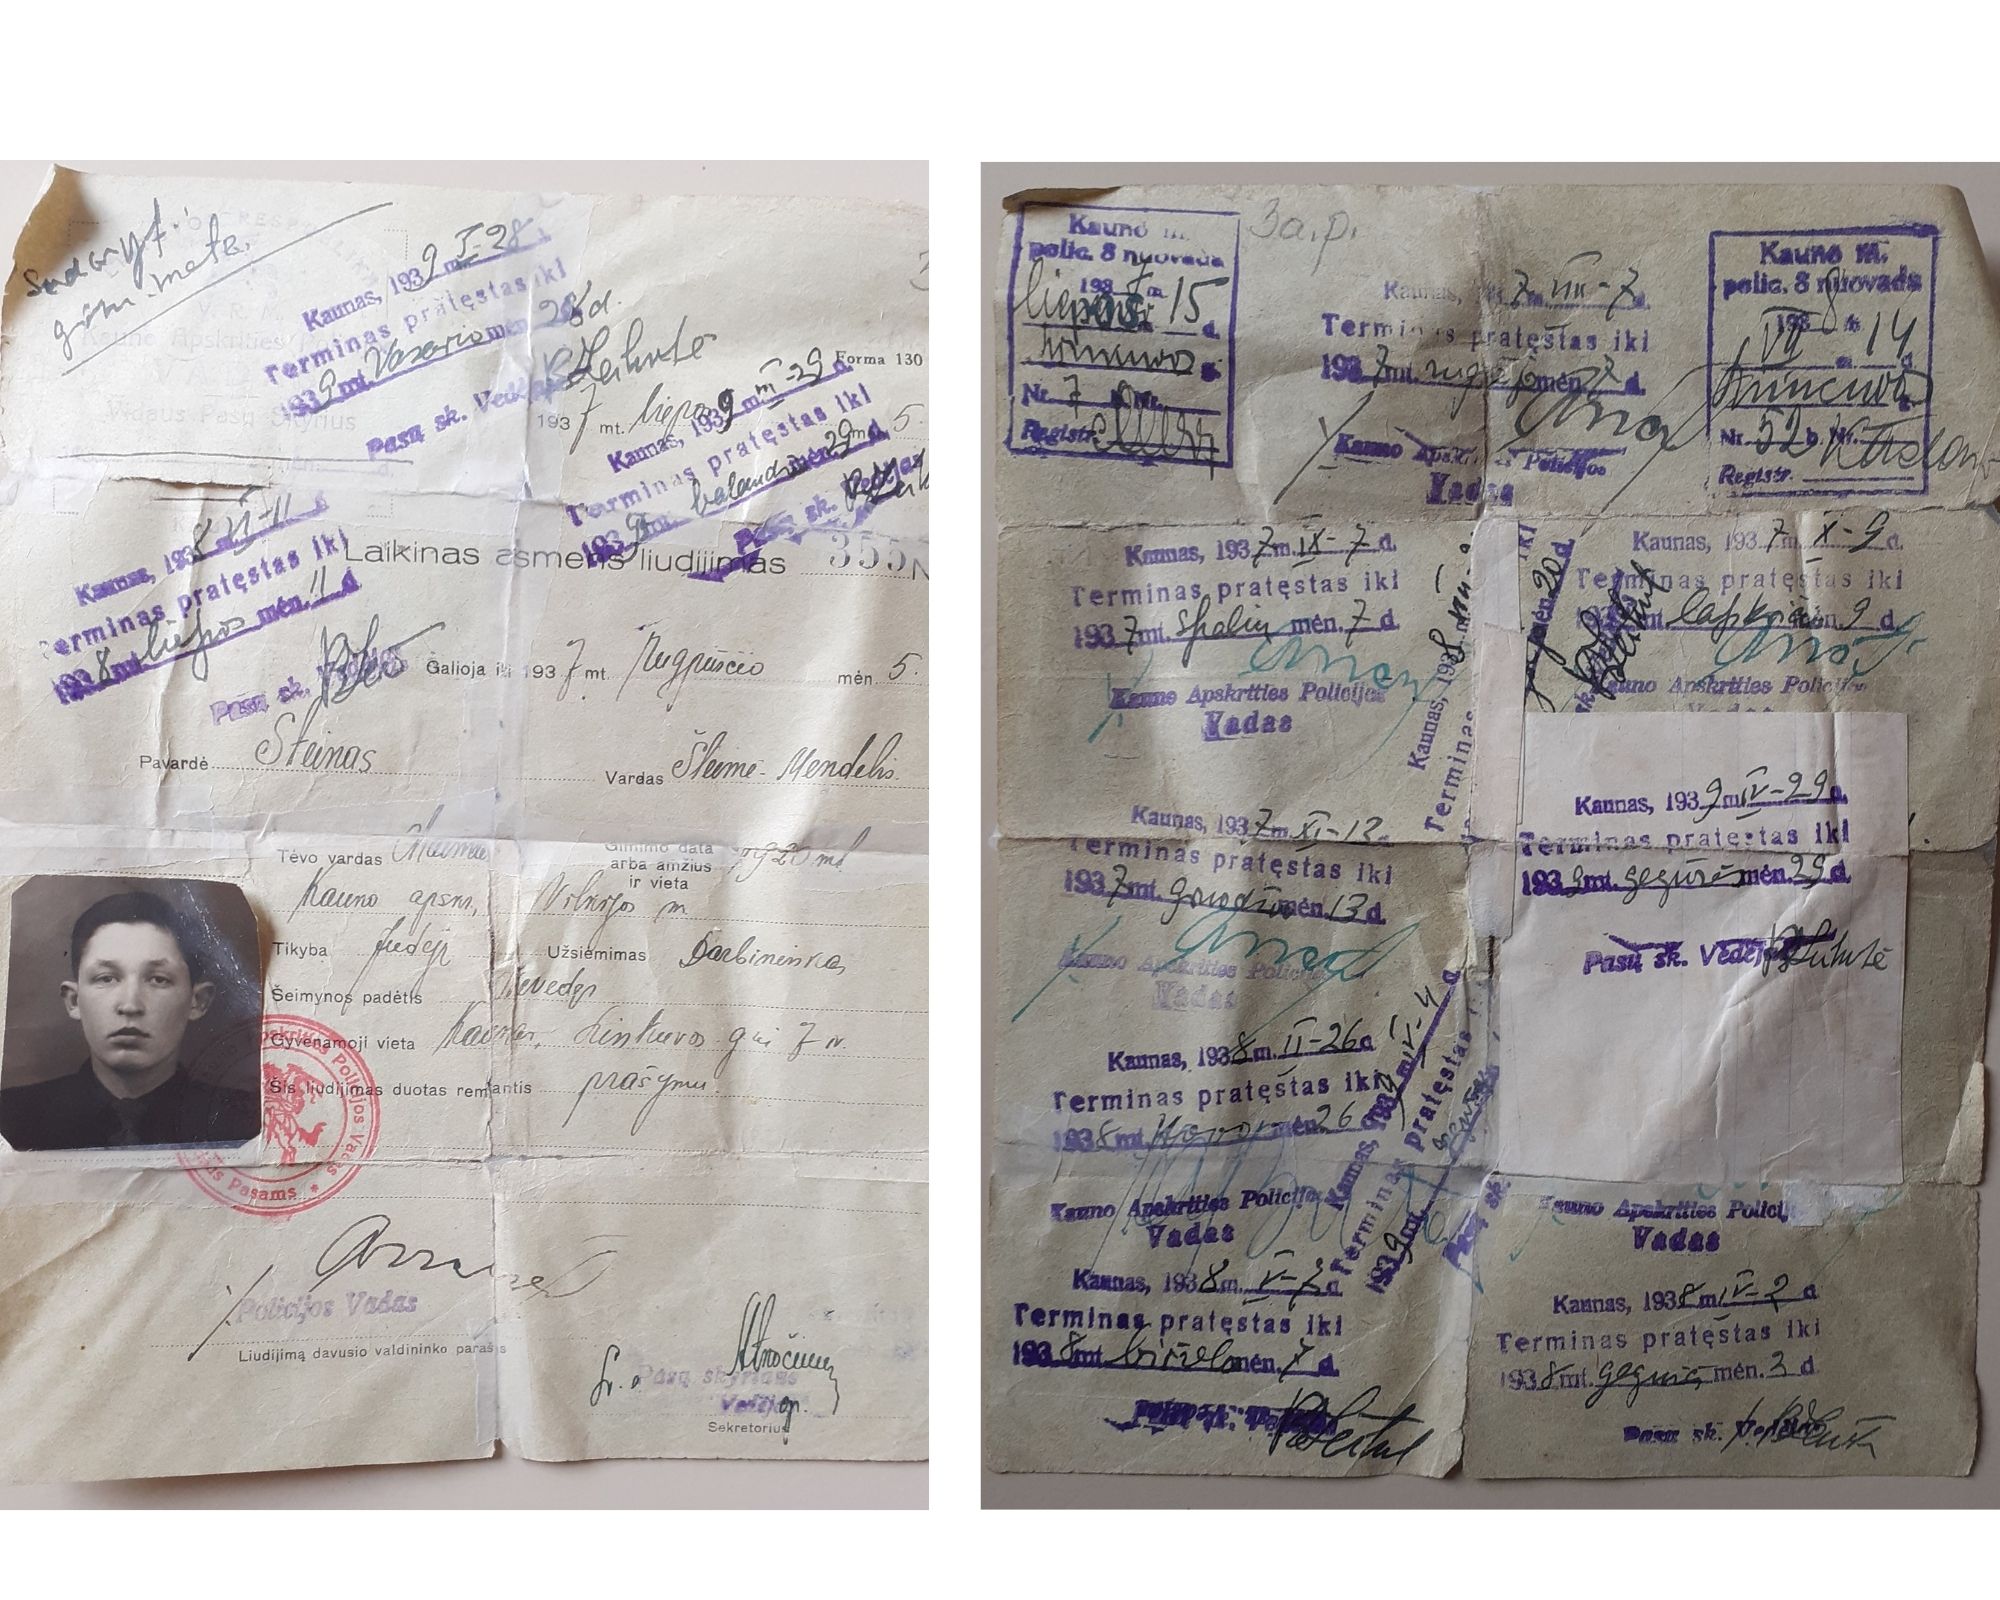 Sudaryt.
gim. metr.
RESPUBLIKA
V. R. M.
Kauno Apskrities
Vidaus Pasų Skyrius
Kaunas, 1939 m. I-28 d.
Terminas pratęstas iki
1939 mt. Vasario mėn. 28 d.
Pasų sk. Vedėjas
Forma 130
1937 mt. liepos 5.
Kaunas, 1939 m. III-29 d.
Terminas pratęstas iki
1939 mt. balandžio mėn. 29 d.
Pasų sk. Vedėjas
Kaunas, 1938 VI-11
Terminas pratęstas iki
1938 mt. liepos mėn. 11 d
Pasų sk.
Laikinas asmens liudijimas 355 N
Galioja iki 1937 mt. Rugpiūčio mėn. 5.
Pavardė Šteinas
Vardas Šleimė-Mendelis
Tėvo vardas
Gimimo data
arba amžius
ir vieta
1920 mt
Kauno apskr. Vilkijos m
Tikyba Judėjų
Užsiėmimas Darbininkas
Šeimynos padėtis Nevedęs
Gyvenamoji vieta Kaunas, Linkuvos g-vė 7 n.
Šis liudijimas duotas remiantis prašymu
Apskrities Policijos Vadas
Pasams *
Policijos Vadas
Liudijimą davusio valdininko parašas
Pasų skyriaus
Vedėjas
Sekretorius
Kauno m.
polic. 8 nuovada
1937 m.
liepos 15 d.
Linkuvos g.
Nr. 7 b. Nr.
Registr.
3a.p.
Kaunas, 1937 m. VIII-7 d.
Terminas pratęstas iki
1937 mt. rugsėjo mėn. 7 d.
Kauno Apskrities Policijos
Vadas
Kauno m.
polic. 8 nuovada
1938 m.
VII m. 14 d.
Linkuvos g.
Nr. 52 b. Nr.
Registr.
Kaunas, 1937 m. IX-7 d.
Terminas pratęstas iki
1937 mt. spalių mėn. 7 d.
Kauno Apskrities Policijos
Vadas
Kaunas, 1937 m. X-9 d.
Terminas pratęstas iki
mt. lapkričio mėn. 9 d.
Kauno Apskrities Policijos
Vadas
Kaunas, 1938 m.
Terminas
iki
mėn. 20 d.
Kaunas, 1937 m. XI-13 d.
Terminas pratęstas iki
1937 mt. gruodžio mėn. 13 d.
Kauno Apskrities Policijos
Vadas
Kaunas, 1939 m. IV-29 d.
Terminas pratęstas iki
1939 mt. gegužės mėn. 29 d.
Pasų sk. Vedėjas
Kaunas, 1938 m. II-26 d
Terminas pratęstas iki
1938 mt. Kovo mėn. 26
Kauno Apskrities Policijos
Vadas
Kaunas,
Terminas pratęstas
1939 mt.
Kauno Apskrities Policijos
Vadas
Kaunas, 1938 m. V-7 d.
Terminas pratęstas iki
1938 mt. birželio mėn. 7 d.
Kaunas, 1938 m. IV-2 d
Terminas pratęstas iki
1938 mt. gegužės mėn. 2 d.
Pasų sk. Vedėjas